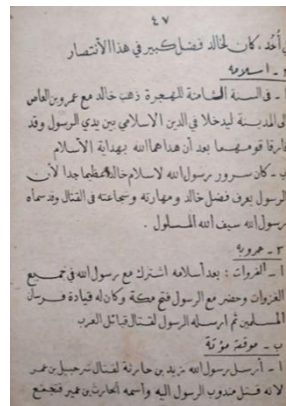 ٤٧
في أُحُد، كان لخالد فضل كبير في هذا الأنتصار
٢ - اسلامه
أ - في السنة الثامنة للهجرة ذهب خالد مع عمرو بن العاص
الى المدينة ليدخلا في الدين الاسلامي بين يدي الرسول وقد
فارقا قومهما بعد أن هداهما الله بهداية الأسلام
ب - كان سرور رسول الله لاسلام خالد عظيما جدا لأن
الرسول يعرف فضل خالد ومهارته وشجاعته في القتال وقد سماه
رسول الله سيف الله المسلول .
٣ - حروبه
أ - الغزوات : بعد أسلامه اشترك مع رسول الله في جميع
الغزوات وحضر مع الرسول فتح مكة وكان له قيادة فرسان
المسلمين ثم ارسله الرسول لقتال قبائل العرب
ب - موقعة مؤتة
أ - أرسل رسول الله زيد بن حارثة لقتال شرحبيل بن عمر
لانه قتل مندوب الرسول اليه وأسمه الحارث بن عمير فتجمع